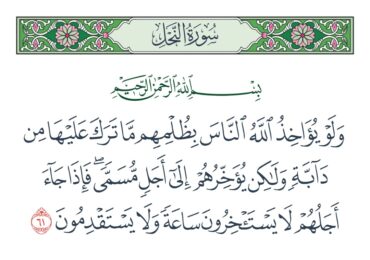 سُورَةُ النَّحْلِ
بِسْمِ اللَّهِ الرَّحْمَٰنِ الرَّحِيمِ
وَلَوْ يُؤَاخِذُ ٱللَّهُ ٱلنَّاسَ بِظُلْمِهِم مَّا تَرَكَ عَلَيْهَا مِن
دَآبَّةٍ وَلَٰكِن يُؤَخِّرُهُمْ إِلَىٰٓ أَجَلٍ مُّسَمًّى ۖ فَإِذَا جَآءَ
أَجَلُهُمْ لَا يَسْتَـْٔخِرُونَ سَاعَةً وَلَا يَسْتَقْدِمُونَ ٦١